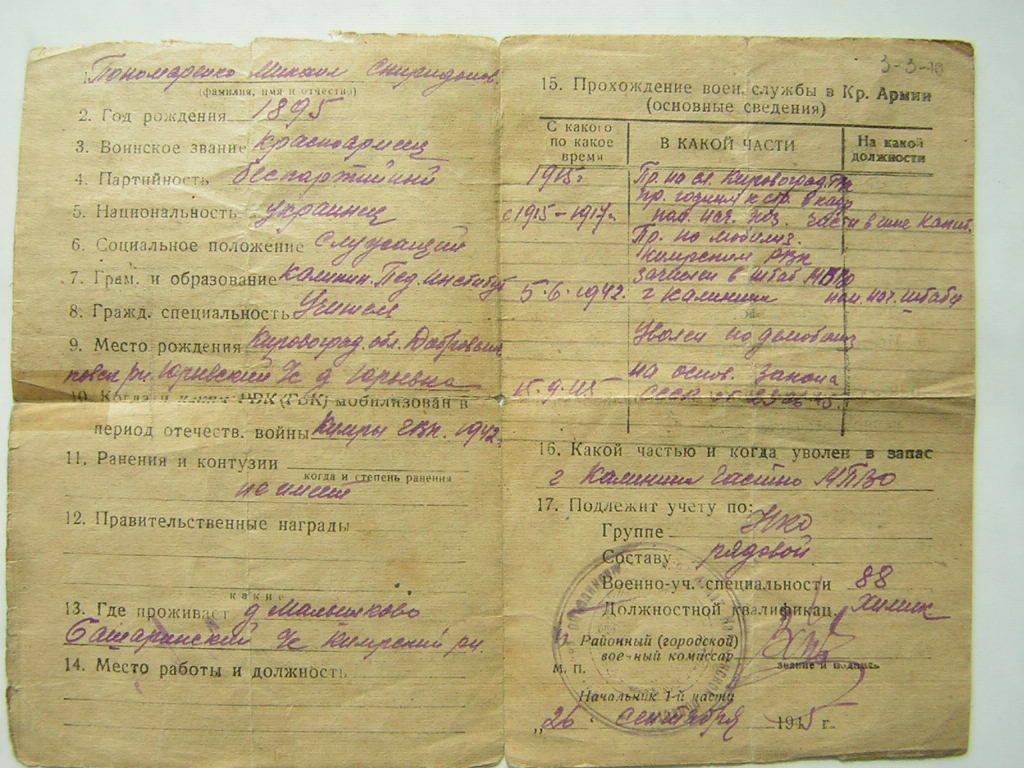 1. Пономаренко Михаил Спиридонов.
(фамилия, имя и отчество)
2. Год рождения 1895
3. Воинское звание красноармеец
4. Партийность беспартийный
5. Национальность украинец
6. Социальное положение служащий
7. Грам. и образование калинин. Пед. институт
8. Гражд. специальность Учитель
9. Место рождения Кировоград. обл.
рн. Юрьевский с/с д Юрьевка
10. Когда и каким РВК (ГВК) мобилизован в
период отечеств. войны Кимры 1942.
11. Ранения и контузии
когда и степень ранения
не имеет
12. Правительственные награды
какие
13. Где проживает д Малышково
с/с Кимрский рн.
14. Место работы и должность
3-3-13
15. Прохождение воен. службы в Кр. Армии
(основные сведения)
С какого по какое время
В КАКОЙ ЧАСТИ
На какой должности
1915г Пр. на сл. Кировоград.
Пр. годным к стр.
с 1915-1917г части
Пр. по мобилиз.
кимрским РВК
зачислен в штаб МПВО
5.6.1942. г Калинин пом. нач. штаба
Уволен по демобилиз
на основ. Закона
15.9.45 СССР от 23.06.45.
16. Какой частью и когда уволен в запас
г Калинин МПВО
17. Подлежит учету по:
Группе НКО
Составу рядовой
Военно-уч. специальности 88
Должностной квалификац. Химик
П. Районный (городской)
военный комиссар
звание и подпись
М. П.
Начальник 1-й части
„26 сентября 1945 г.